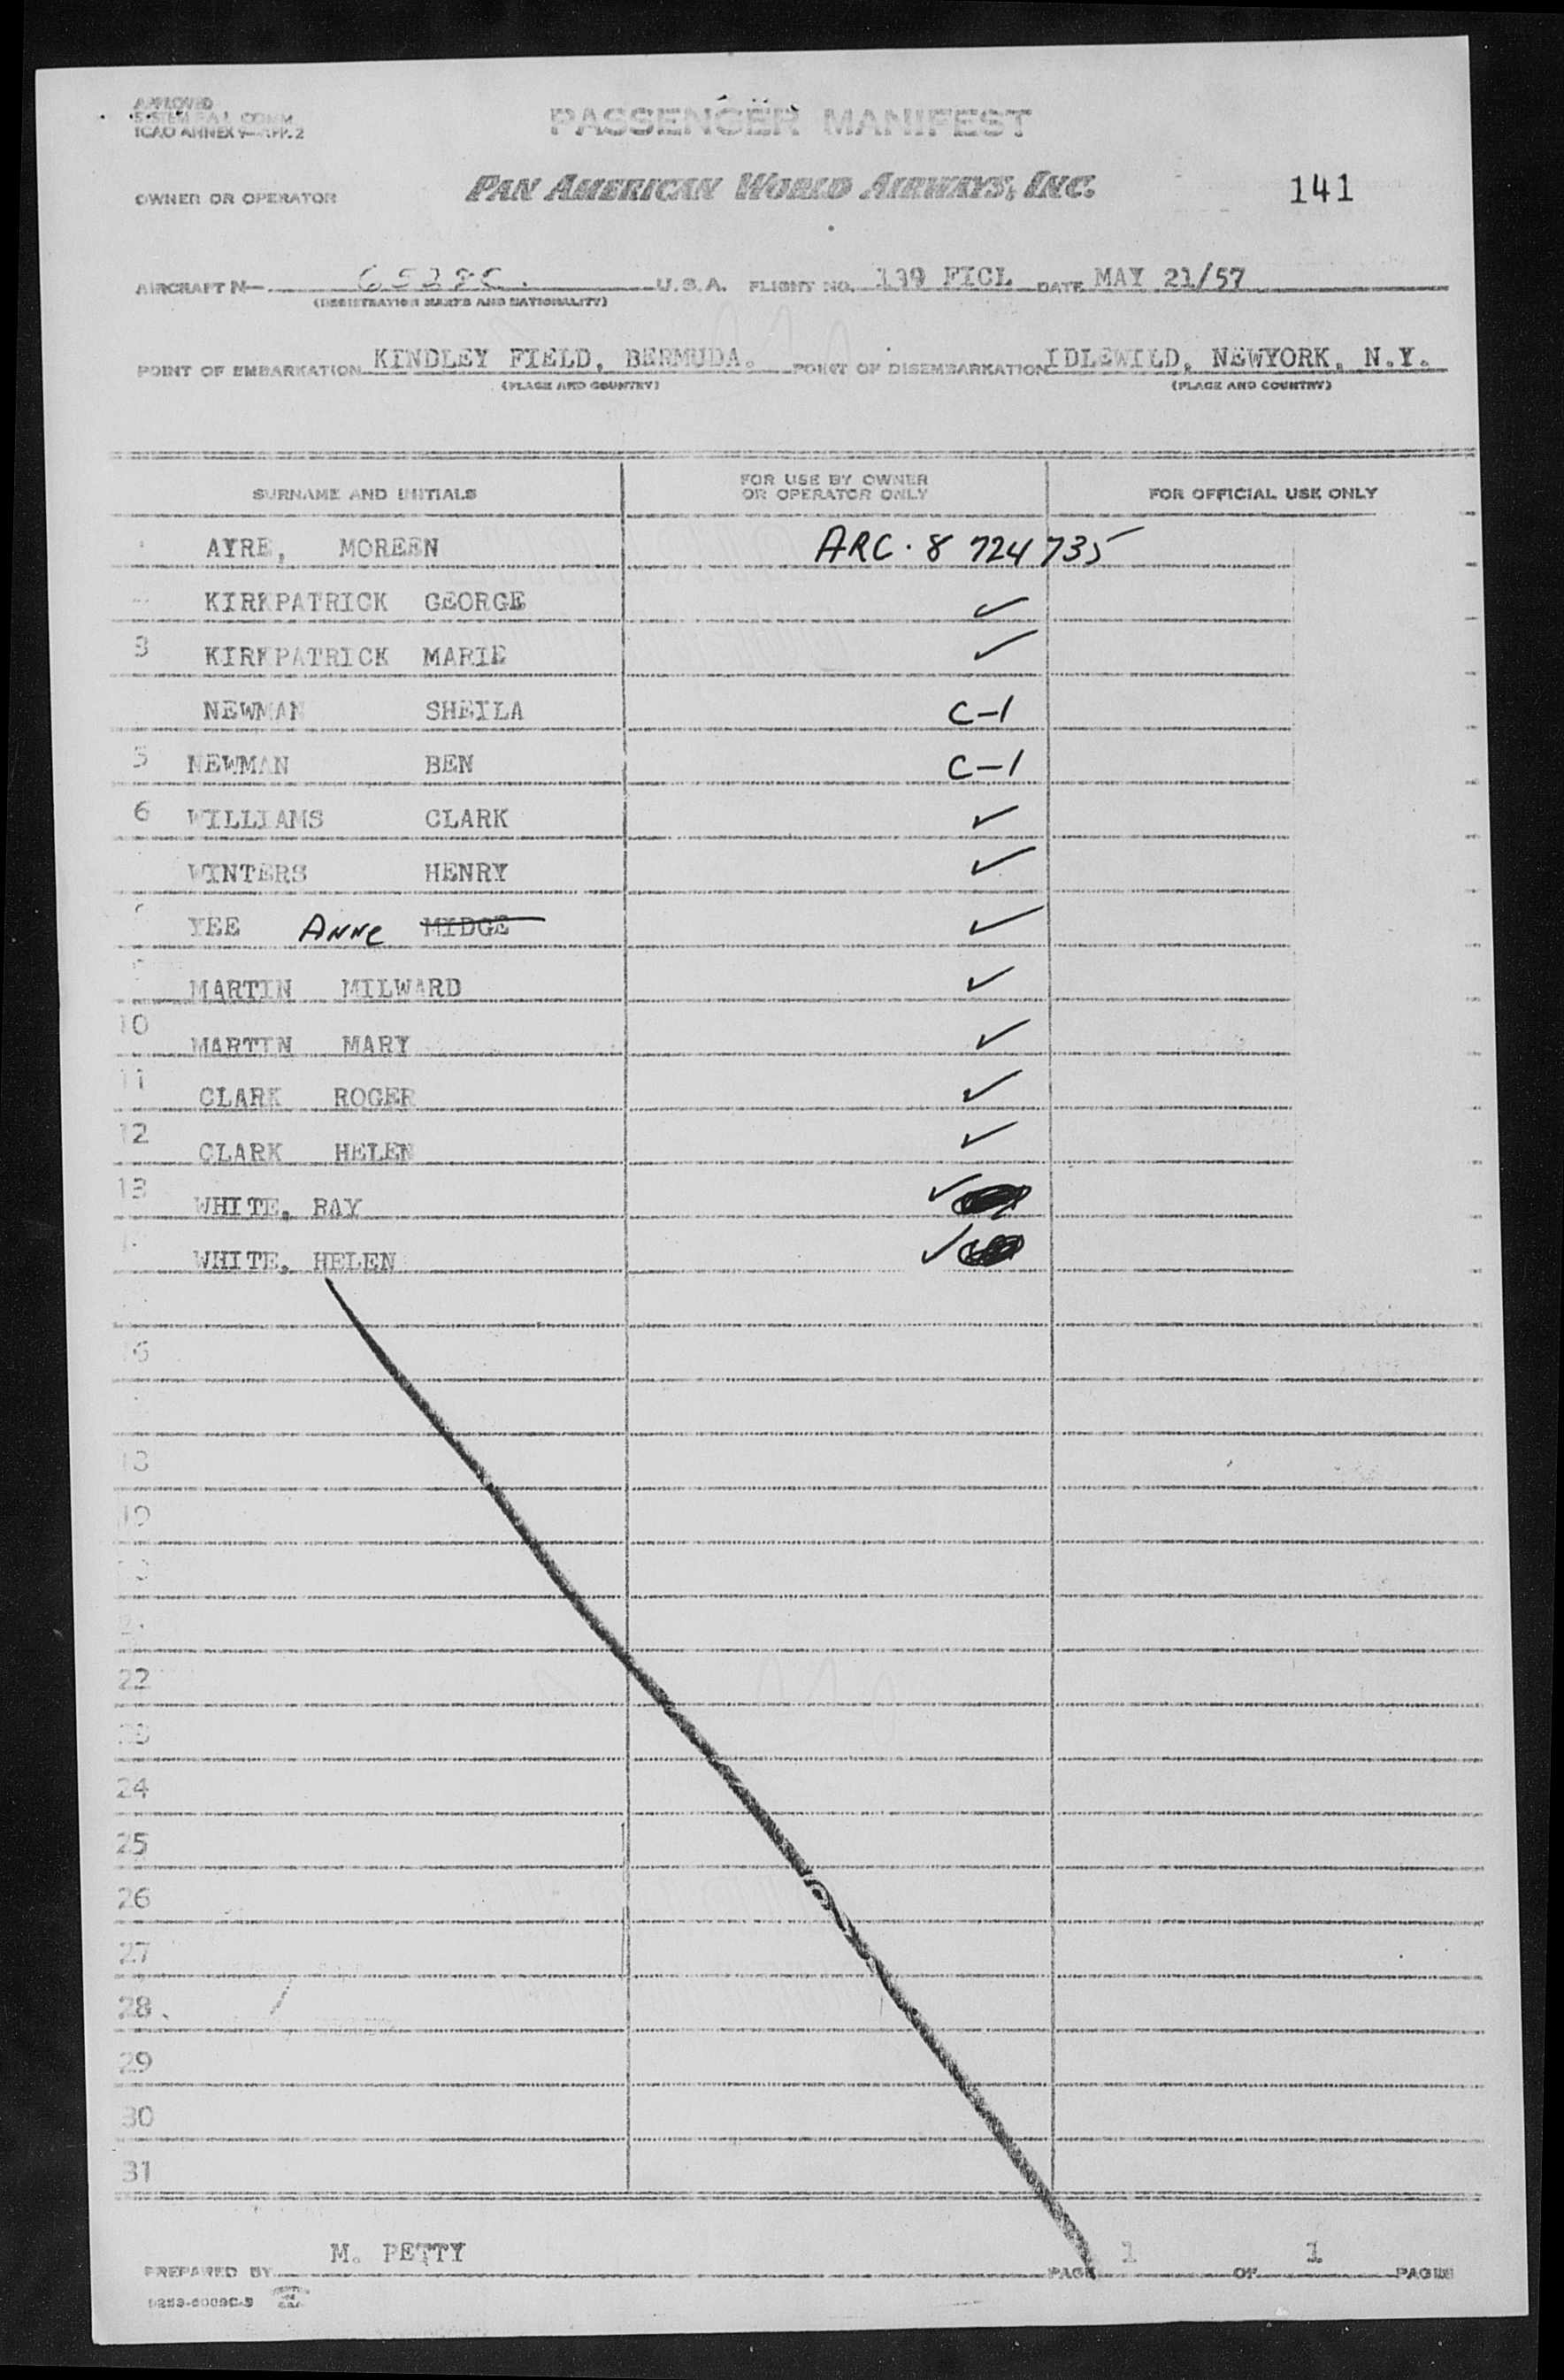 APPROVED
SYSTEM F.A.L. COMM.
ICAO ANNEX 9—APP. 2
PASSENGER MANIFEST
141
OWNER OR OPERATOR PAN AMERICAN WORLD AIRWAYS, INC.
AIRCRAFT N— U.S.A. FLIGHT NO. 139 DATE MAY 21/57
(REGISTRATION MARKS AND NATIONALITY)
POINT OF EMBARKATION KINDLEY FIELD, BERMUDA. POINT OF DISEMBARKATION IDLEWILD, NEWYORK, N.Y.
(PLACE AND COUNTRY) (PLACE AND COUNTRY)
SURNAME AND INITIALS FOR USE BY OWNER OR OPERATOR ONLY FOR OFFICIAL USE ONLY
AYRE, MOREEN ARC. 8 724 735
KIRKPATRICK GEORGE ✓
3 KIRKPATRICK MARIE ✓
NEWMAN SHEILA C-1
5 NEWMAN BEN C-1
6 WILLIAMS CLARK ✓
WINTERS HENRY ✓
YEE Anne MIDGE ✓
MARTIN MILWARD ✓
10 MARTIN MARY ✓
11 CLARK ROGER ✓
12 CLARK HELEN ✓
13 WHITE, RAY ✓
WHITE, HELEN ✓
16
18
19
22
23
24
25
26
27
28
29
30
31
PREPARED BY M. PETTY PAGE 1 OF 1 PAGES